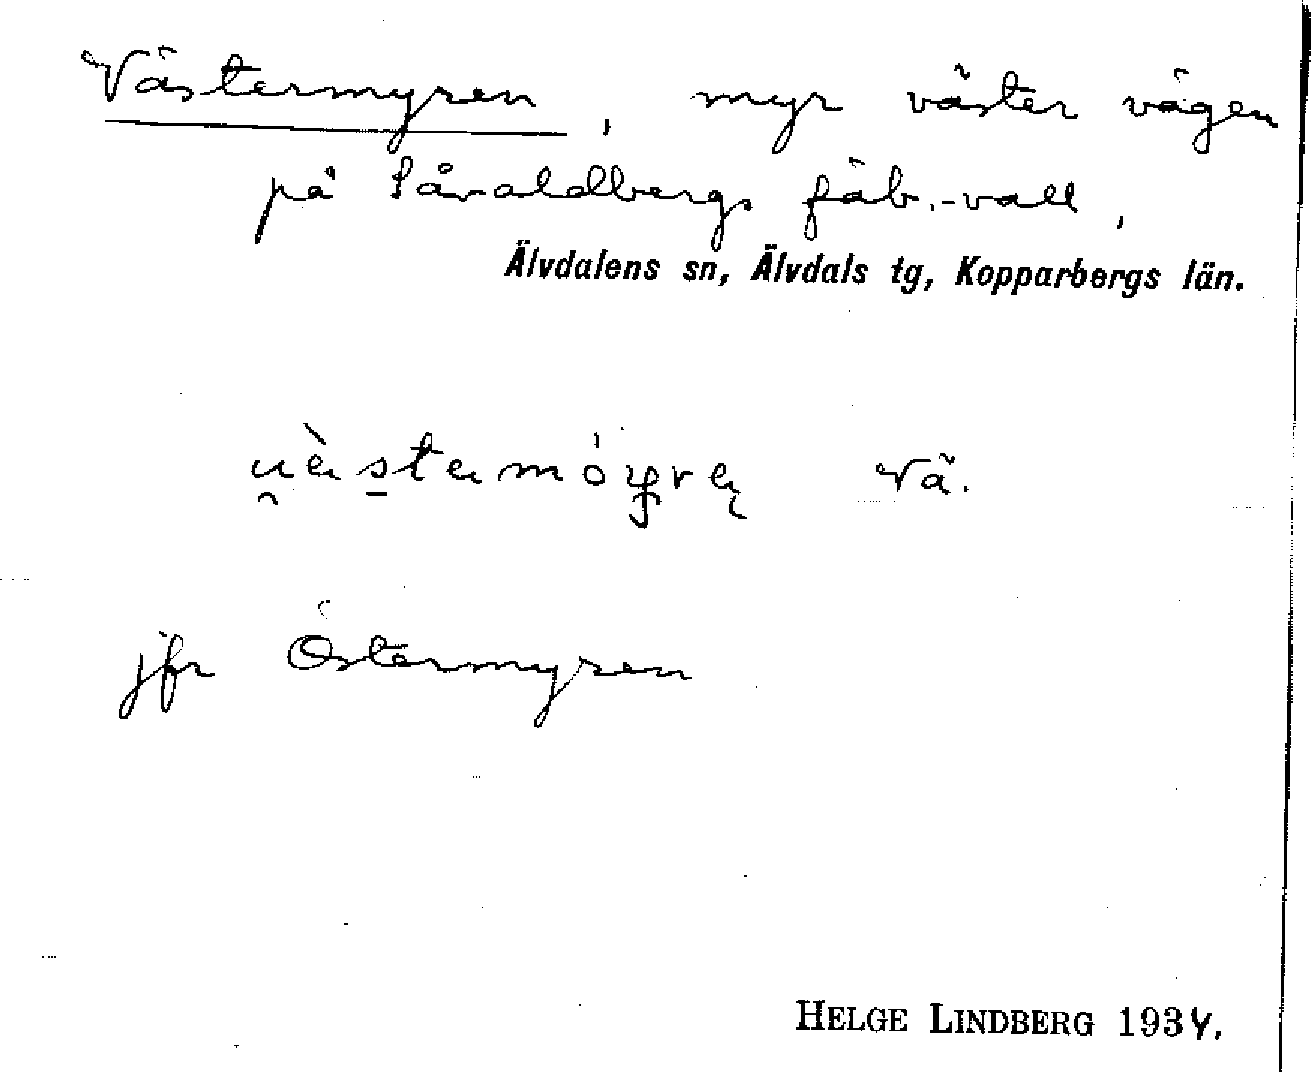 Västermyren, myr väster vägen
på Såraldbergs fäb.-vall,
Älvdalens sn, Älvdals tg, Kopparbergs län.
Vä.
jfr Östermyren
HELGE LINDBERG 1934.